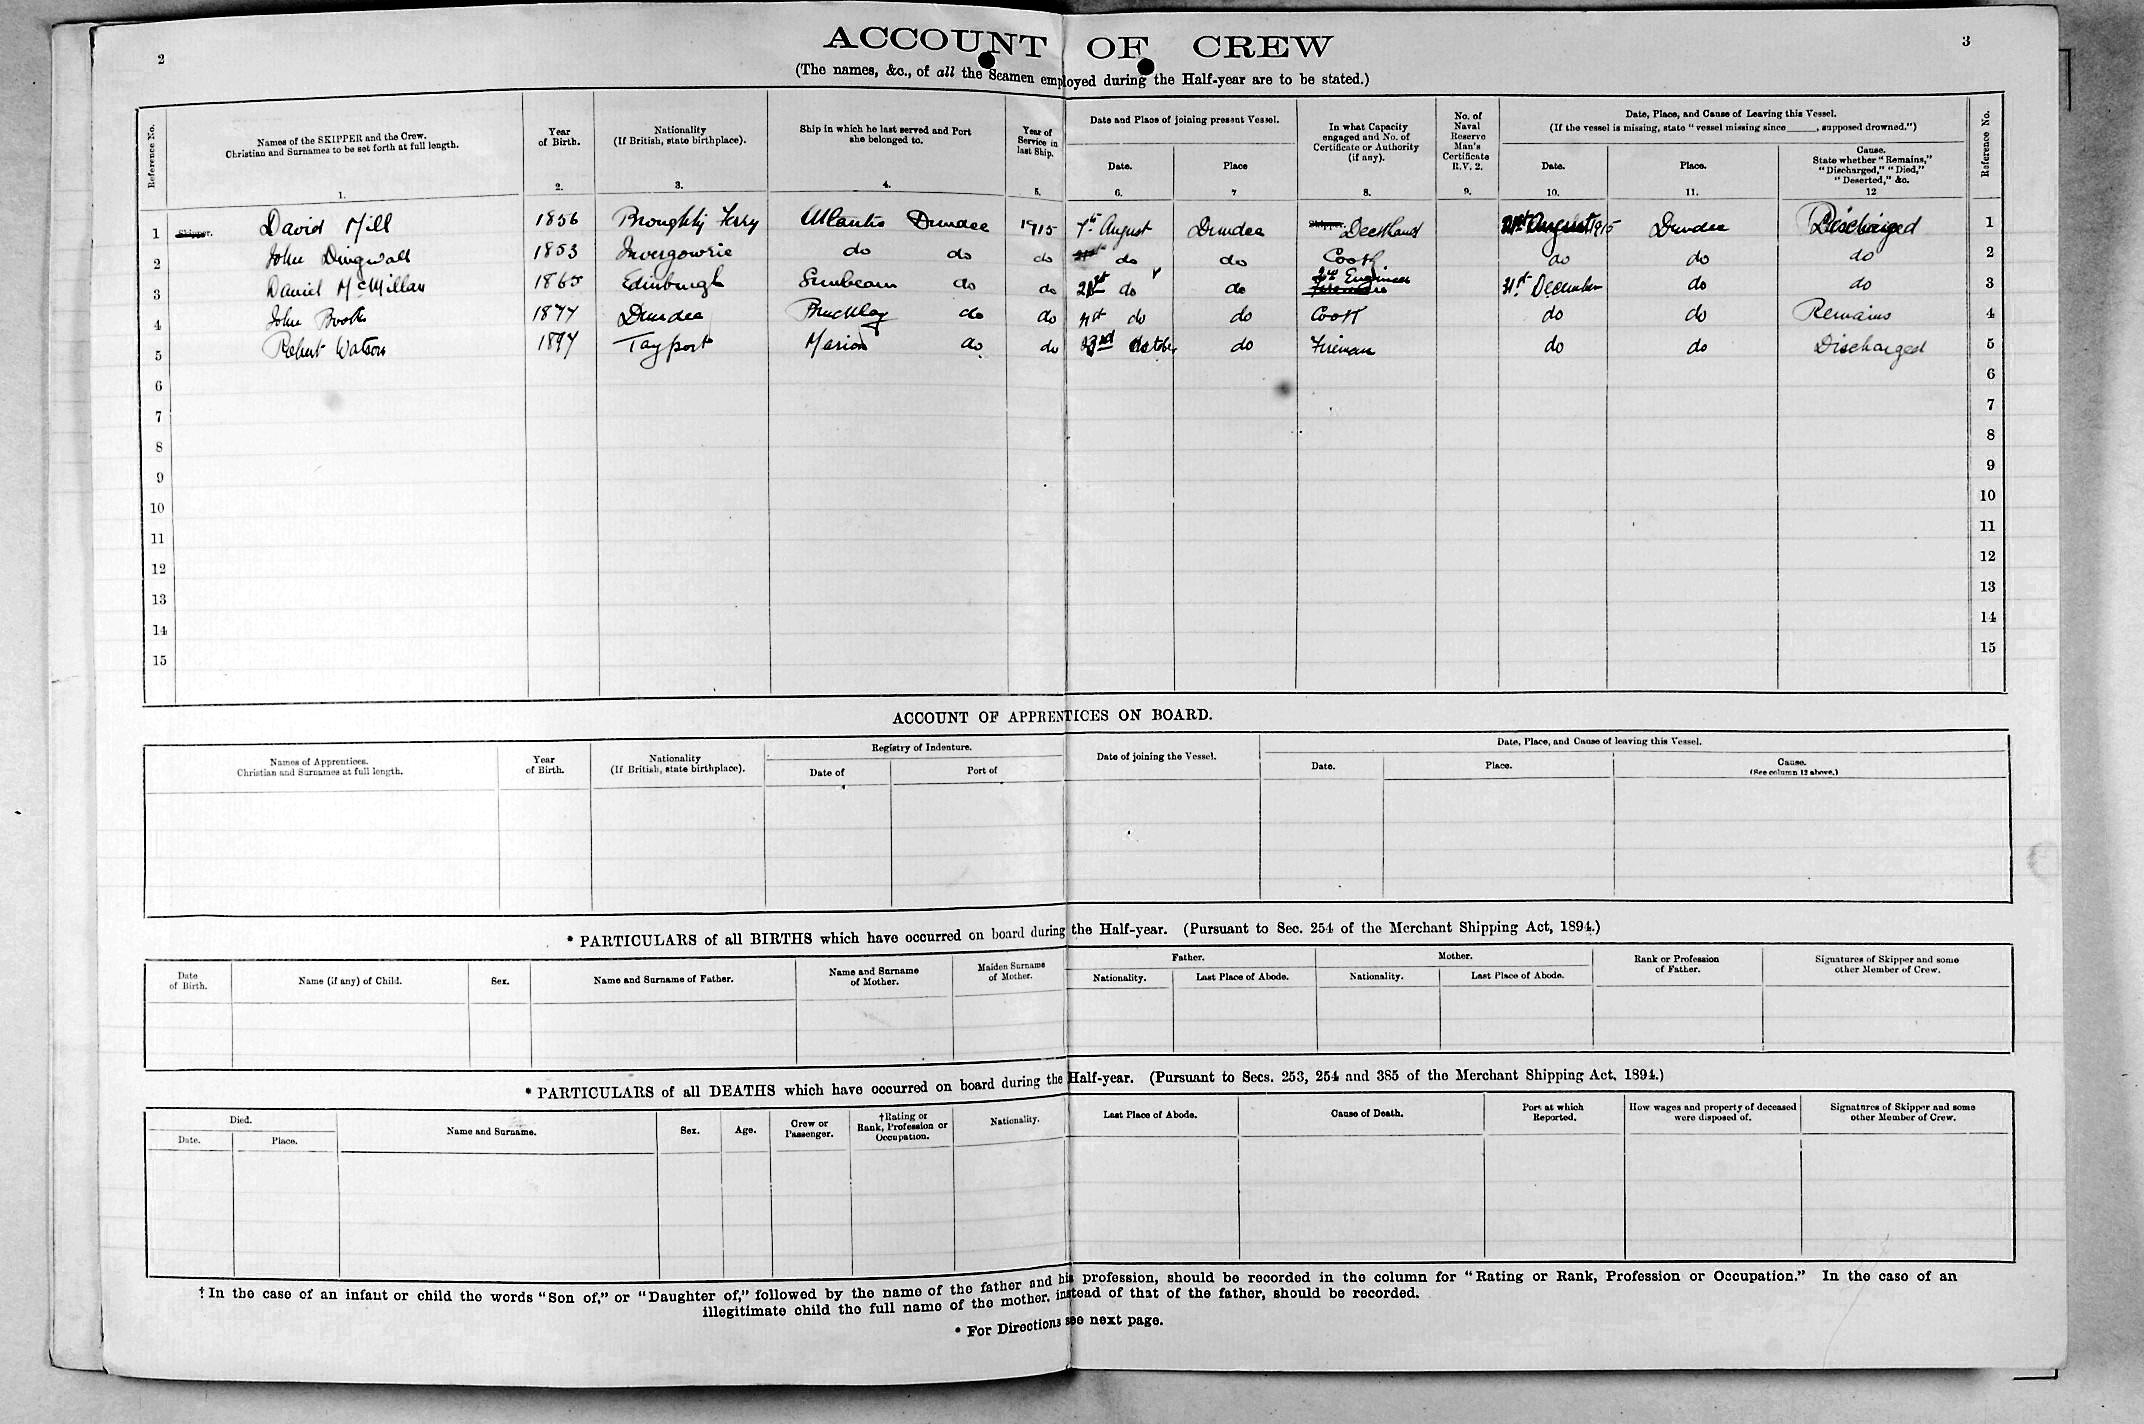 2
ACCOUNT OF CREW
3
(The names, &c., of all the Seamen employed during the Half-year are to be stated.)
Reference No.
Names of the SKIPPER and the Crew.
Christian and Surnames to be set forth at full length.
1.
Year
of Birth.
2.
Nationality
(If British, state birthplace).
3.
Ship in which he last served and Port
she belonged to.
4.
Year of
Service in
last Ship.
5.
Date and Place of joining present Vessel.
Date.
6.
Place
7
In what Capacity
engaged and No. of
Certificate or Authority
(if any).
8.
No. of
Naval
Reserve
Man's
Certificate
R.V. 2.
9.
Date, Place, and Cause of Leaving this Vessel.
(If the vessel is missing, state "vessel missing since_____, supposed drowned.")
Date.
10.
Place.
11.
Cause.
State whether "Remains,"
"Discharged," "Died,"
"Deserted," &c.
12
Reference No.
1 Skipper. David Mill 1856 Broughty Ferry Atlantis Dundee 1915 7th August Dundee Skipper Deckhand August 1915 Dundee Discharged 1
2 John Dingwall 1853 Invergowrie do do do do do Cook do do do 2
3 Daniel McMillan 1865 Edinburgh Sunbeam do do 21st do do 2nd Engineer 31st December do do 3
4 John Booth 1877 Dundee do do do do Cook do do Remains 4
5 Robert Watson 1897 Tayport Marion do do 23rd October do Fireman do do Discharged 5
6 6
7 7
8 8
9 9
10 10
11 11
12 12
13 13
14 14
15 15
ACCOUNT OF APPRENTICES ON BOARD.
Names of Apprentices.
Christian and Surnames at full length.
Year
of Birth.
Nationality
(If British, state birthplace).
Registry of Indenture.
Date of
Port of
Date of joining the Vessel.
Date, Place, and Cause of leaving this Vessel.
Date.
Place.
Cause.
(See column 12 above.)
* PARTICULARS of all BIRTHS which have occurred on board during the Half-year. (Pursuant to Sec. 254 of the Merchant Shipping Act, 1894.)
Date
of Birth.
Name (if any) of Child.
Sex.
Name and Surname of Father.
Name and Surname
of Mother.
Maiden Surname
of Mother.
Father.
Nationality.
Last Place of Abode.
Mother.
Nationality.
Last Place of Abode.
Rank or Profession
of Father.
Signatures of Skipper and some
other Member of Crew.
* PARTICULARS of all DEATHS which have occurred on board during the Half-year. (Pursuant to Secs. 253, 254 and 385 of the Merchant Shipping Act, 1894.)
Died.
Date.
Place.
Name and Surname.
Sex.
Age.
Crew or
Passenger.
†Rating or
Rank, Profession or
Occupation.
Nationality.
Last Place of Abode.
Cause of Death.
Port at which
Reported.
How wages and property of deceased
were disposed of.
Signatures of Skipper and some
other Member of Crew.
† In the case of an infant or child the words "Son of," or "Daughter of," followed by the name of the father and his profession, should be recorded in the column for "Rating or Rank, Profession or Occupation." In the case of an
illegitimate child the full name of the mother, instead of that of the father, should be recorded.
* For Directions see next page.